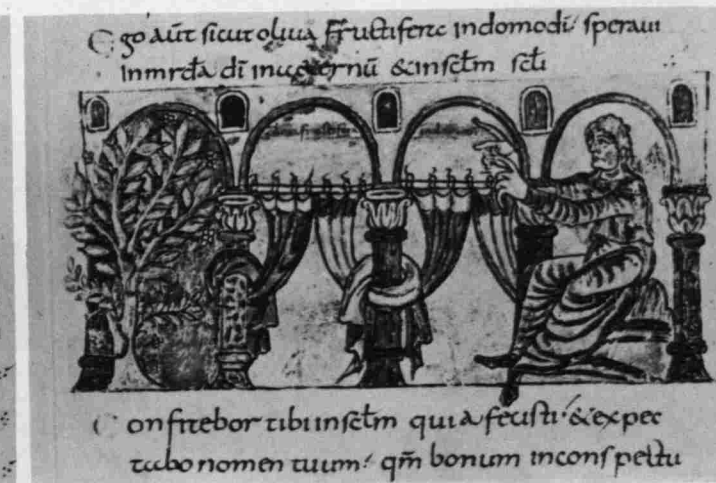 Ego aūt sicut oliua fructifera indomo di speraui
inm̄cda dī in &ernū &inscl̄m scl̄i
Confitebor tibi inscl̄m quia fecisti &expec
tabo nomen tuum qm̄ bonum inconspectu